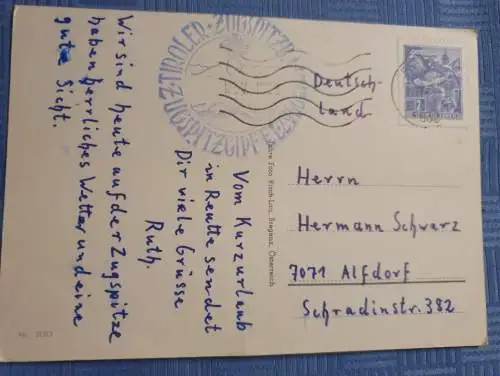 Wir sind heute auf der Zugspitze
haben herrliches Wetter und eine
gute Sicht.
Vom Kurzurlaub
in Reutte sendet
Dir viele Grüsse
Ruth.
TIROLER · ZUGSPITZ
ZUGSPITZGIPFEL
Deutsch-
land
Herrn
Hermann Schwarz
7071 Alfdorf
Schradinstr. 382
Risch-Lau, Bregenz, Österreich